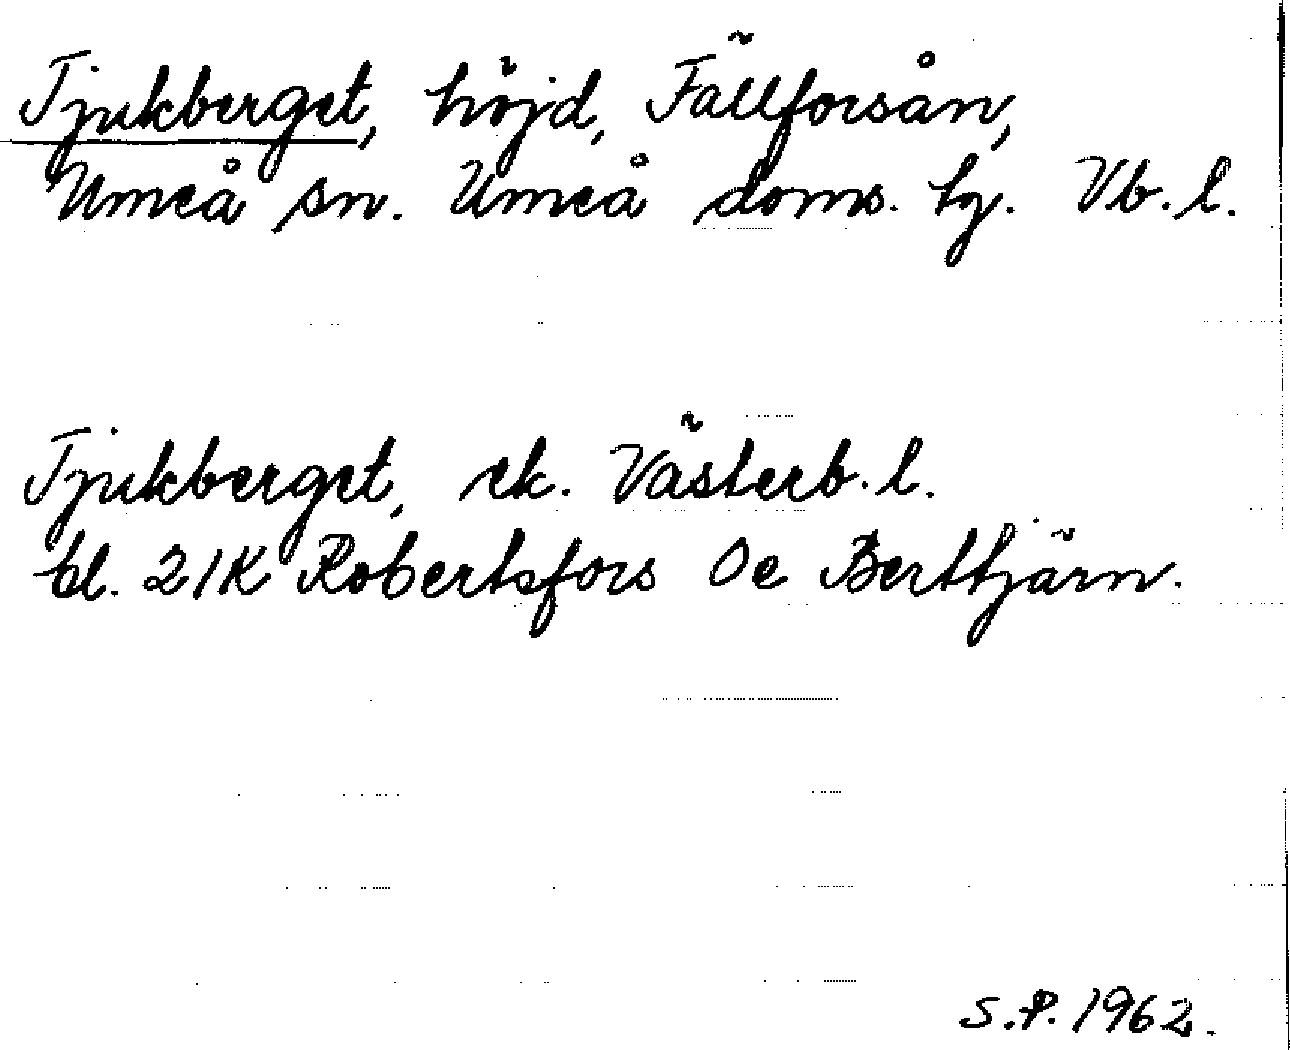 Tjukberget, höjd, Fällforsån,
Umeå sn. Umeå doms. tg. Vb. l.
Tjukberget, ek. Västerb. l.
bl. 21K Robertsfors 0e Berttjärn.
S.P. 1962.